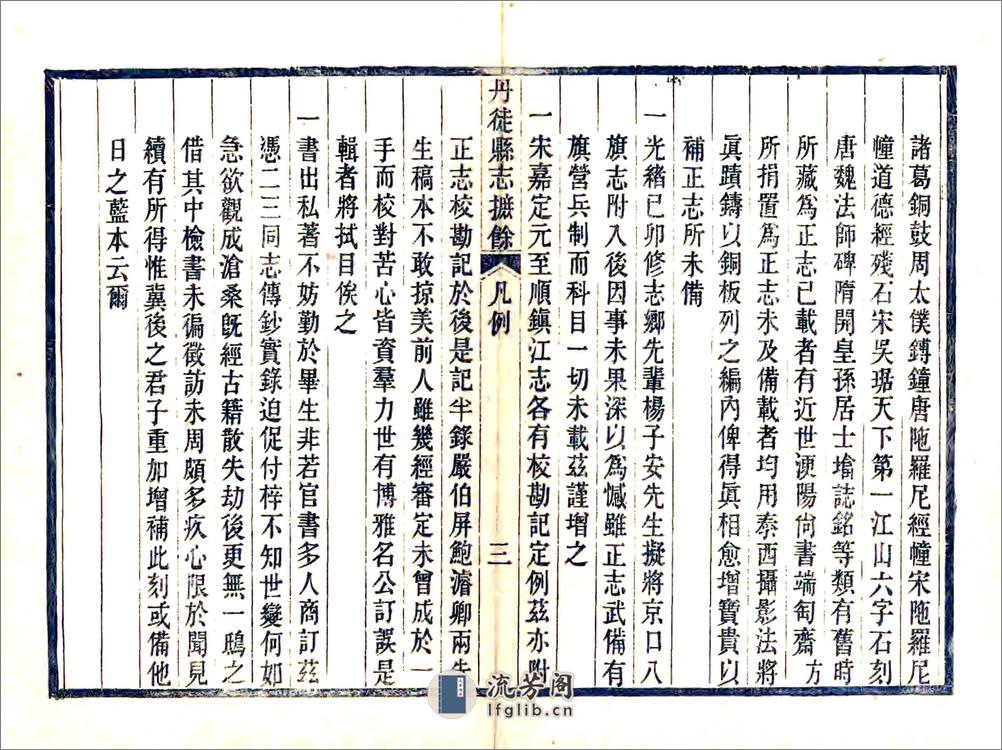 諸葛銅鼓周太僕鎛鐘唐陁羅尼經幢宋陁羅尼
幢道德經殘石宋吳琚天下第一江山六字石刻
唐魏法師碑隋開皇孫居士墖誌銘等類有舊時
所藏爲正志已載者有近世溧陽尙書端匋齋方
所捐置爲正志未及備載者均用泰西攝影法將
眞蹟鑄以銅板列之編內俾得眞相愈增寶貴以
補正志所未備
一光緒己卯修志鄉先輩楊子安先生擬將京口八
旗志附入後因事未果深以爲憾雖正志武備有
旗營兵制而科目一切未載茲謹增之
一宋嘉定元至順鎮江志各有校勘記定例茲亦附
丹徒縣志摭餘
凡例
三
正志校勘記於後是記半錄嚴伯屏鮑濬卿兩先
生稿本不敢掠美前人雖幾經審定未曾成於一
手而校對苦心皆資羣力世有博雅名公訂誤是
輯者將拭目俟之
一書出私著不妨勤於畢生非若官書多人商訂茲
憑二三同志傳鈔實錄迫促付梓不知世變何如
急欲觀成滄桑旣經古籍散失劫後更無一鴟之
借其中檢書未徧徵訪未周頗多疚心限於聞見
續有所得惟冀後之君子重加增補此刻或備他
日之藍本云爾
流芳阁
lfglib.cn